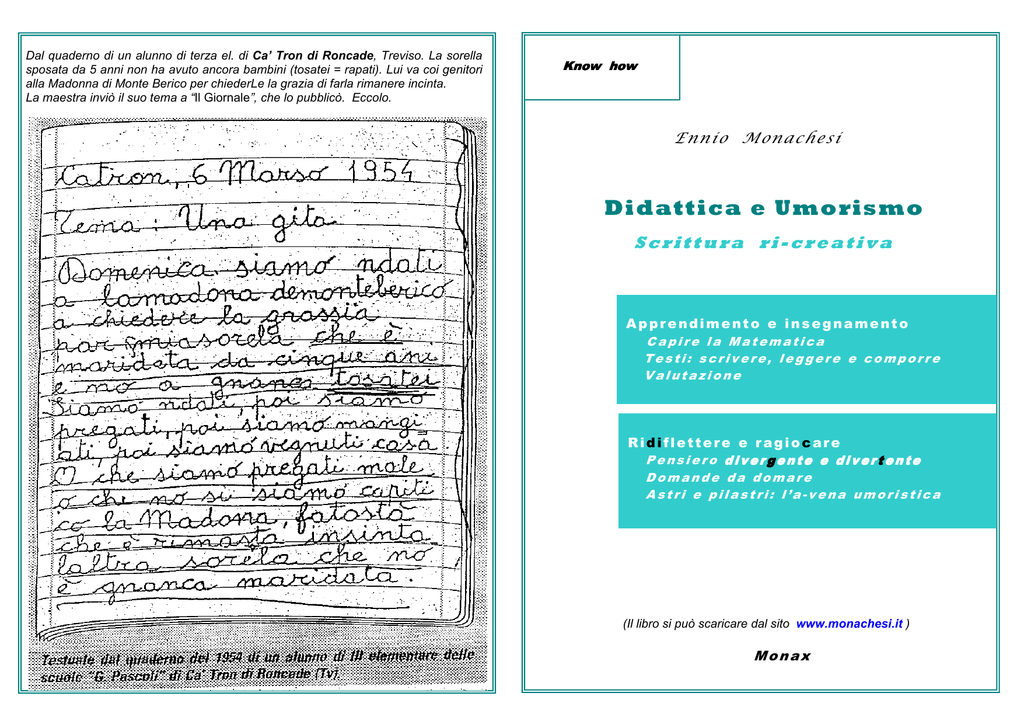 Dal quaderno di un alunno di terza el. di Ca’ Tron di Roncade, Treviso. La sorella
sposata da 5 anni non ha avuto ancora bambini (tosatei = rapati). Lui va coi genitori
alla Madonna di Monte Berico per chiederLe la grazia di farla rimanere incinta.
La maestra inviò il suo tema a “Il Giornale”, che lo pubblicò. Eccolo.
Catron, 6 Marso 1954
Tema : Una gita
Domenica siamo ndati
a lamadona demonteberico
a chiedere la grassia
par miasorela che è
marideta da cinque ani
e no a gnanca tositei
Siamo ndati, poi siamo
pregati, poi siamo mangi
ati, poi siamo vegnuti casa
O che siamo pregati male
o che no si siamo capiti
co la Madona, fatostà
che è rimasta insinta
laltra sorela che no
è gnanca maridata.
Testuale dal quaderno del 1954 di un alunno di III elementare delle
scuole “G. Pascoli” di Ca’ Tron di Roncade (Tv).
Know how
Ennio Monachesi
Didattica e Umorismo
Scrittura ri-creativa
Apprendimento e insegnamento
Capire la Matematica
Testi: scrivere, leggere e comporre
Valutazione
Ridiflettere e ragiocare
Pensiero divergente e divertente
Domande da domare
Astri e pilastri: l’a-vena umoristica
(Il libro si può scaricare dal sito www.monachesi.it )
Monax